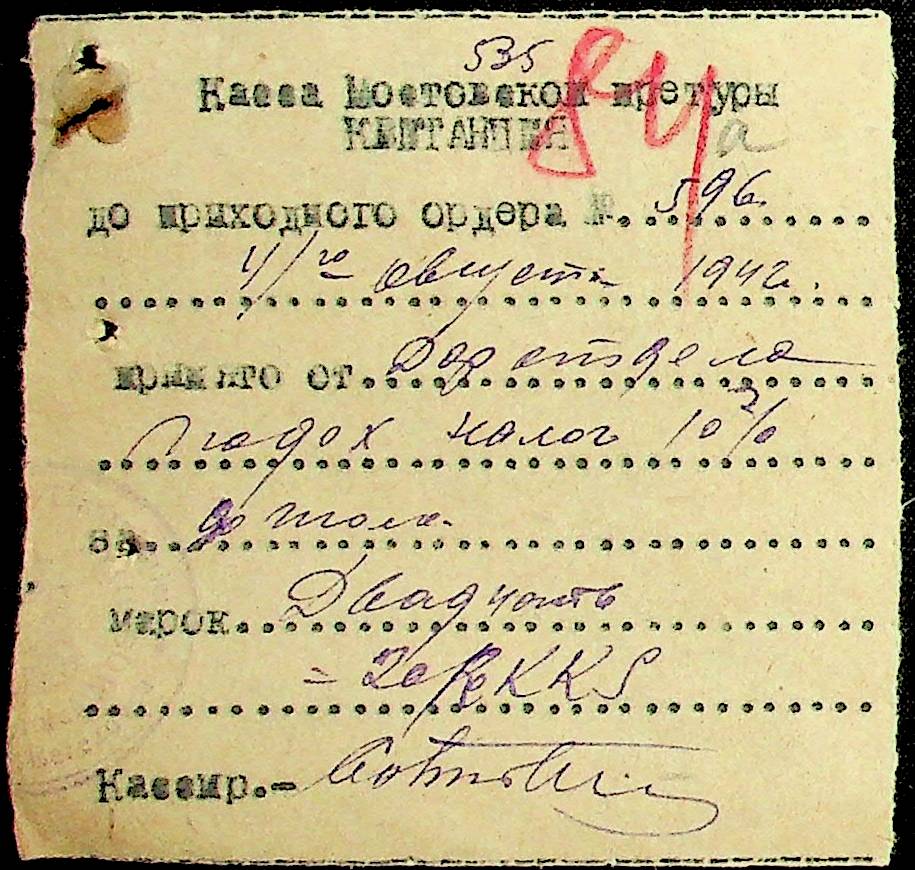 535
Касса Мостовской претуры
84
КВИТАНЦИЯ
а
до приходного ордера №. 596
4/го августа 1942г.
принято от Дор отдела
подох налог 10%
за
марок Двадцать
= 20 RKKS
Кассир.-